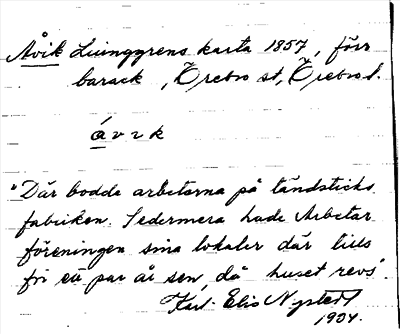 Åvik Ljunggrens karta 1857, förr
barack, Örebro st, Örebro l.
åvik
"Där bodde arbetarna på tändsticks
fabriken. Sedermera hade Arbetar
föreningen sina lokaler där tills
för ett par år sen, då huset revs".
Karl-Elis Nystedt
1934.